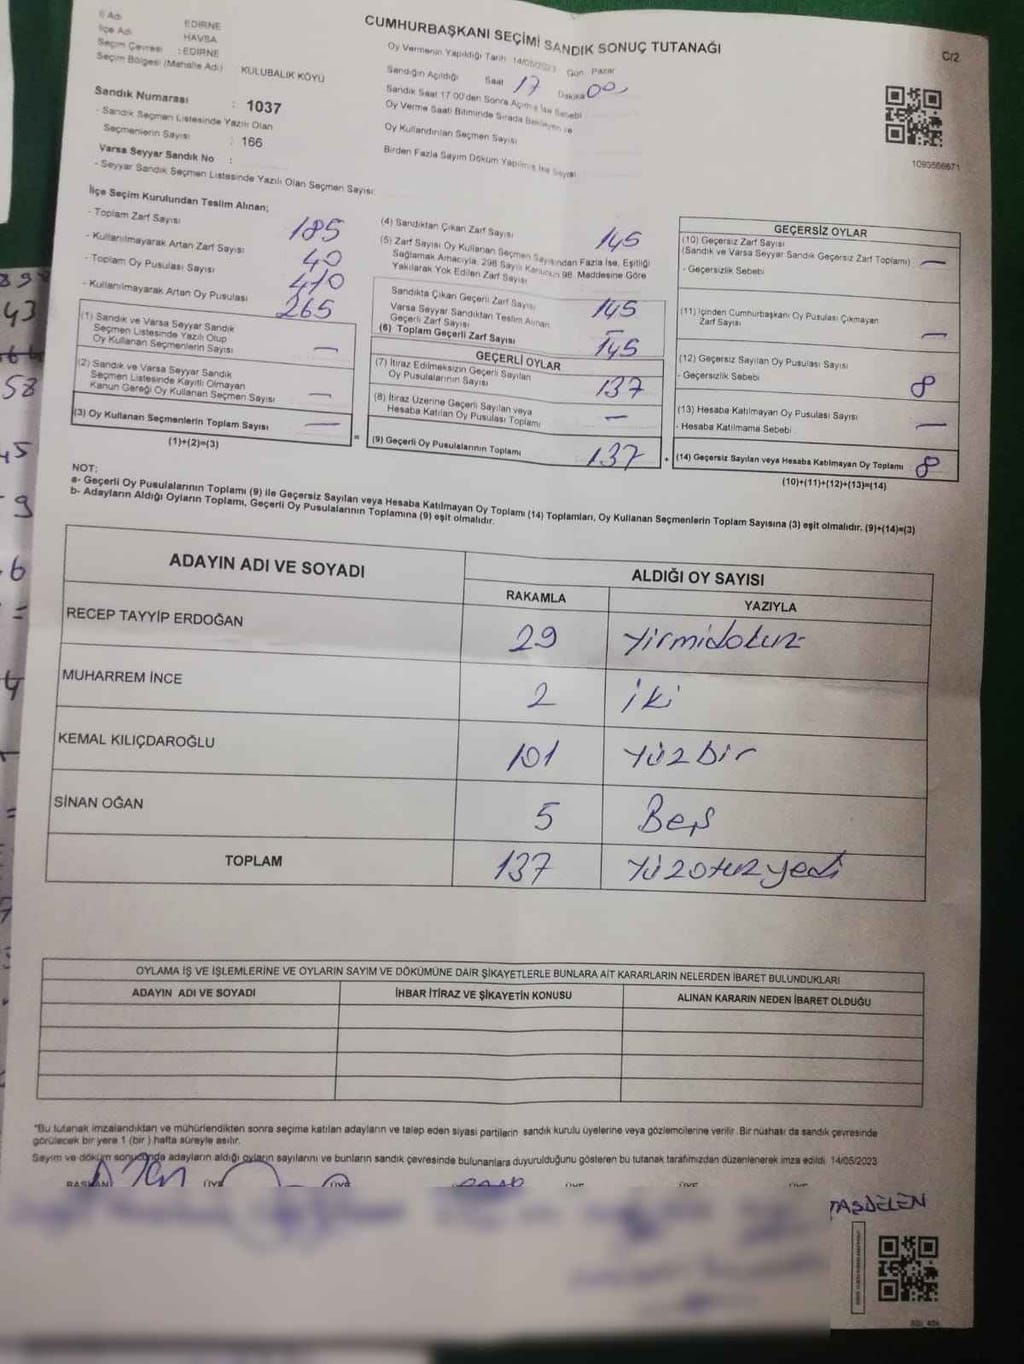 İl Adı EDİRNE
İlçe Adı HAVSA
Seçim Çevresi : EDİRNE
Seçim Bölgesi (Mahalle Adı) KULUBALIK KÖYÜ
Sandık Numarası : 1037
- Sandık Seçmen Listesinde Yazılı Olan
Seçmenlerin Sayısı : 166
Varsa Seyyar Sandık No :
- Seyyar Sandık Seçmen Listesinde Yazılı Olan Seçmen Sayısı:
CUMHURBAŞKANI SEÇİMİ SANDIK SONUÇ TUTANAĞI
Oy Vermenin Yapıldığı Tarih 14/05/2023 Gün Pazar
Sandığın Açıldığı Saat 17 Dakika 00
Sandık Saat 17:00'den Sonra Açılmış İse Sebebi
Oy Verme Saati Bitiminde Sırada Bekleyen ve
Oy Kullandırılan Seçmen Sayısı
Birden Fazla Sayım Döküm Yapılmış İse Sayısı
Cr2
1093566671
İlçe Seçim Kurulundan Teslim Alınan;
- Toplam Zarf Sayısı 185
- Kullanılmayarak Artan Zarf Sayısı 40
- Toplam Oy Pusulası Sayısı 410
- Kullanılmayarak Artan Oy Pusulası 265
(1) Sandık ve Varsa Seyyar Sandık
Seçmen Listesinde Yazılı Olup
Oy Kullanan Seçmenlerin Sayısı —
(2) Sandık ve Varsa Seyyar Sandık
Seçmen Listesinde Kayıtlı Olmayan
Kanun Gereği Oy Kullanan Seçmen Sayısı —
(3) Oy Kullanan Seçmenlerin Toplam Sayısı —
(1)+(2)=(3)
=
(4) Sandıktan Çıkan Zarf Sayısı 145
(5) Zarf Sayısı Oy Kullanan Seçmen Sayısından Fazla İse, Eşitliği
Sağlamak Amacıyla, 298 Sayılı Kanunun 98. Maddesine Göre
Yakılarak Yok Edilen Zarf Sayısı
Sandıkta Çıkan Geçerli Zarf Sayısı 145
Varsa Seyyar Sandıktan Teslim Alınan
Geçerli Zarf Sayısı —
(6) Toplam Geçerli Zarf Sayısı 145
GEÇERLİ OYLAR
(7) İtiraz Edilmeksizin Geçerli Sayılan
Oy Pusulalarının Sayısı 137
(8) İtiraz Üzerine Geçerli Sayılan veya
Hesaba Katılan Oy Pusulası Toplamı —
(9) Geçerli Oy Pusulalarının Toplamı 137
+
GEÇERSİZ OYLAR
(10) Geçersiz Zarf Sayısı
(Sandık ve Varsa Seyyar Sandık Geçersiz Zarf Toplamı) —
- Geçersizlik Sebebi
(11) İçinden Cumhurbaşkanı Oy Pusulası Çıkmayan
Zarf Sayısı —
(12) Geçersiz Sayılan Oy Pusulası Sayısı
- Geçersizlik Sebebi 8
(13) Hesaba Katılmayan Oy Pusulası Sayısı
- Hesaba Katılmama Sebebi —
(14) Geçersiz Sayılan veya Hesaba Katılmayan Oy Toplamı 8
(10)+(11)+(12)+(13)=(14)
NOT:
a- Geçerli Oy Pusulalarının Toplamı (9) ile Geçersiz Sayılan veya Hesaba Katılmayan Oy Toplamı (14) Toplamları, Oy Kullanan Seçmenlerin Toplam Sayısına (3) eşit olmalıdır. (9)+(14)=(3)
b- Adayların Aldığı Oyların Toplamı, Geçerli Oy Pusulalarının Toplamına (9) eşit olmalıdır.
ADAYIN ADI VE SOYADI
ALDIĞI OY SAYISI
RAKAMLA YAZIYLA
RECEP TAYYİP ERDOĞAN 29 Yirmidokuz
MUHARREM İNCE 2 iki
KEMAL KILIÇDAROĞLU 101 Yüzbir
SİNAN OĞAN 5 Beş
TOPLAM 137 Yüzotuzyedi
OYLAMA İŞ VE İŞLEMLERİNE VE OYLARIN SAYIM VE DÖKÜMÜNE DAİR ŞİKAYETLERLE BUNLARA AİT KARARLARIN NELERDEN İBARET BULUNDUKLARI
ADAYIN ADI VE SOYADI İHBAR İTİRAZ VE ŞİKAYETİN KONUSU ALINAN KARARIN NEDEN İBARET OLDUĞU
"Bu tutanak imzalandıktan ve mühürlendikten sonra seçime katılan adayların ve talep eden siyasi partilerin sandık kurulu üyelerine veya gözlemcilerine verilir. Bir nüshası da sandık çevresinde
görülecek bir yere 1 (bir) hafta süreyle asılır.
Sayım ve döküm sonucunda adayların aldığı oyların sayılarını ve bunların sandık çevresinde bulunanlara duyurulduğunu gösteren bu tutanak tarafımızdan düzenlenerek imza edildi. 14/05/2023
BAŞKAN ÜYE ÜYE ÜYE ÜYE ÜYE
TAŞDELEN
43
58
45
9
6
=
4
=